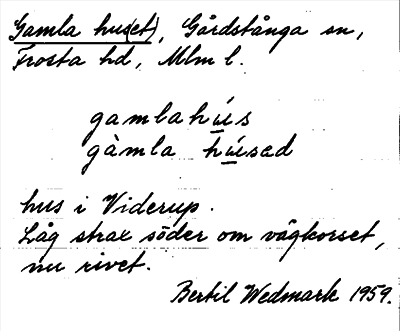 Gamla hus(et), Gårdstånga sn,
Frosta hd, Mlm l.
gamlahú̱s
gàmla hú̱sed
hus i Viderup.
Låg strax söder om vägkorset,
nu rivet.
Bertil Wedmark 1959.